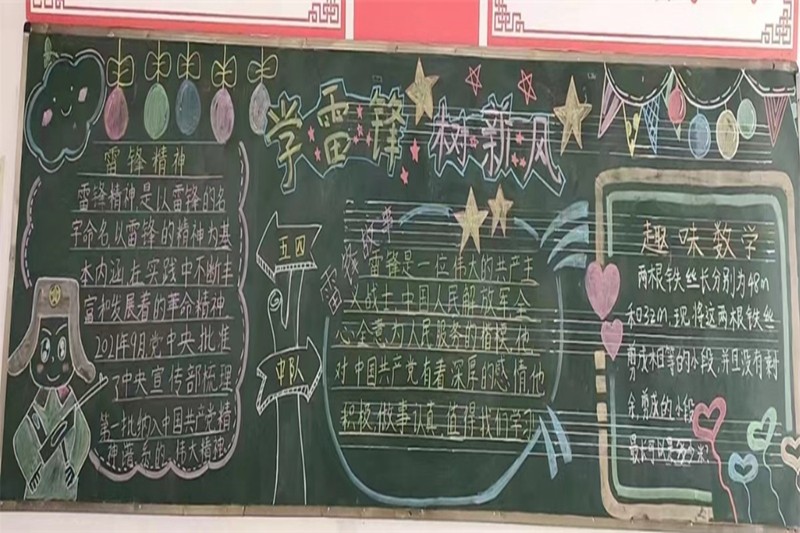 学雷锋 树新风
雷锋精神
雷锋精神是以雷锋的名
字命名以雷锋的精神为基
本内涵在实践中不断丰
富和发展着的革命精神
2021年9月党中央批准
了中央宣传部梳理
第一批纳入中国共产党精
神谱系的伟大精神
五四
中队
雷锋故事
雷锋是一位伟大的共产主
义战士中国人民解放军全
心全意为人民服务的楷模,他
对中国共产党有着深厚的感情他
积极,做事认真,值得我们学习
趣味数学
两根铁丝长分别为48m
和32m,现将这两根铁丝
剪成相等的小段,并且没有剩
余,剪成的小段
最长可以是多少米?